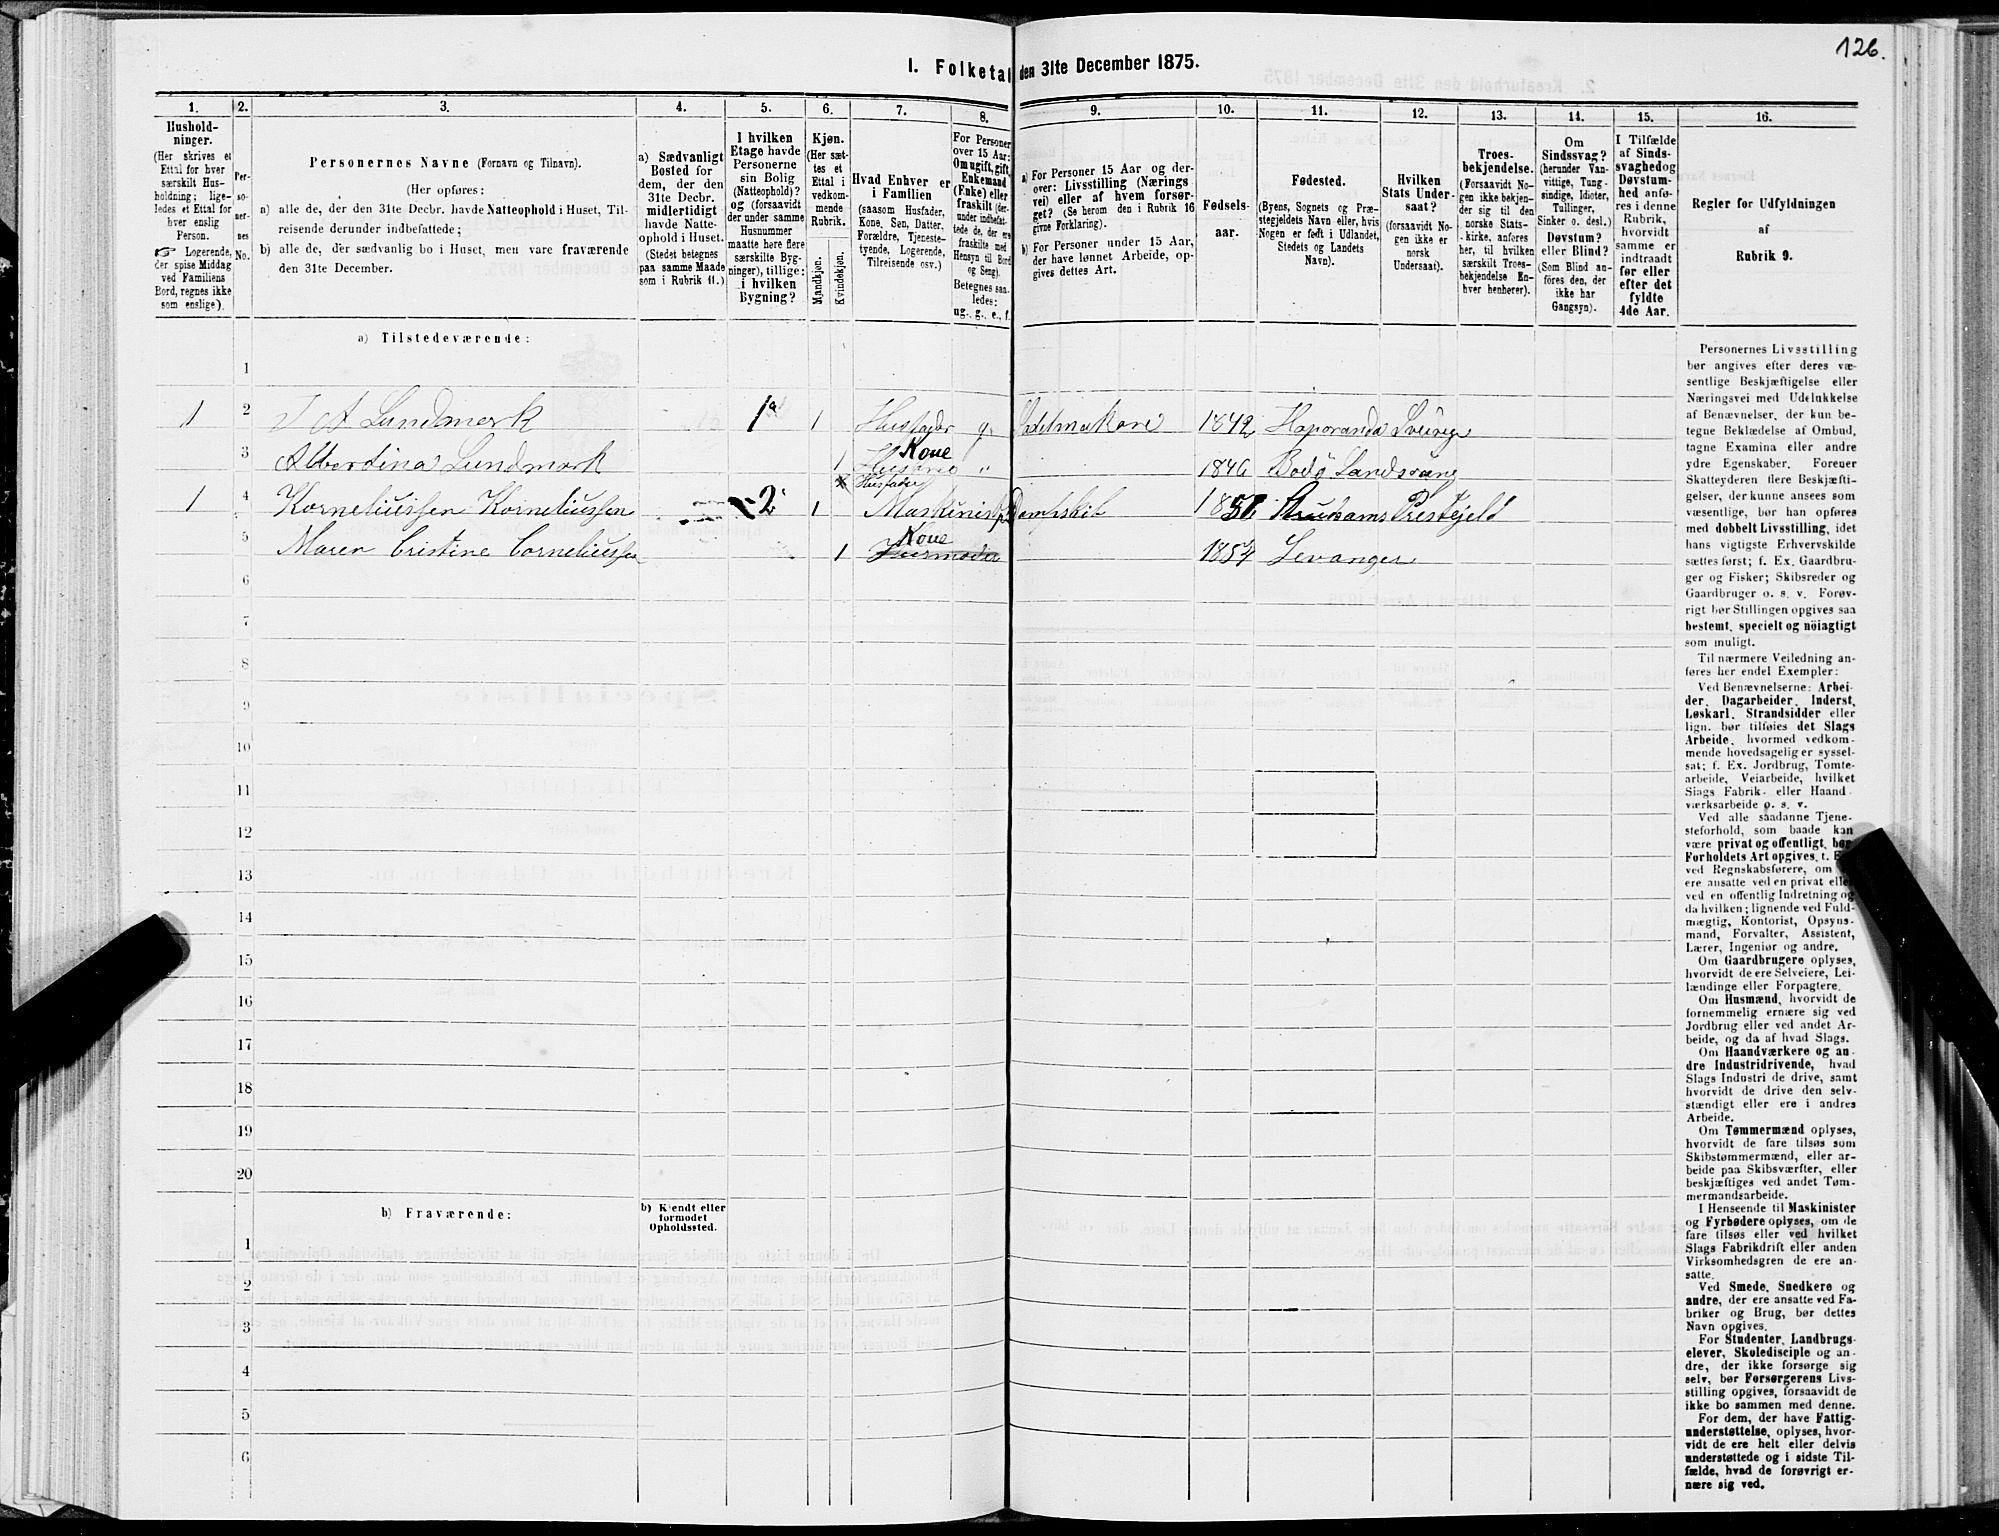 126.
1. Folketal den 31te December 1875.
1. 2. 3. 4. 5. 6. 7. 8. 9. 10. 11. 12. 13. 14. 15. 16.
Hushold-
ninger.
(Her skrives et
Ettal for hver
særskilt Hus-
holdning; lige-
ledes et Ettal for
hver enslig
Person.
☞ Logerende,
der spise Middag
ved Familiens
Bord, regnes ikke
som enslige).
Per-
so-
ner-
nes
No.
Personernes Navne (Fornavn og Tilnavn).
(Her opføres:
a) alle de, der den 31te Decbr. havde Natteophold i Huset, Til-
reisende derunder indbefattede;
b) alle de, der sædvanlig bo i Huset, men vare fraværende
den 31te December.
a) Sædvanligt
Bosted for
dem, der den
31te Decbr.
midlertidigt
havde Natte-
ophold i Huset.
(Stedet betegnes
paa samme Maade
som i Rubrik 11.)
I hvilken
Etage havde
Personerne
sin Bolig
(Natteophold)?
og (forsaavidt
der under samme
Husnummer
maatte høre flere
særskilte Byg-
ninger), tillige:
i hvilken
Bygning?
Kjøn.
(Her sæt-
tes et
Ettal i
vedkom-
mende
Rubrik.
Mandkjøn.
Kvindekjøn.
Hvad Enhver er
i Familien
(saasom Husfader,
Kone, Søn, Datter,
Forældre, Tjeneste-
tyende, Logerende,
Tilreisende osv.)
For Personer
over 15 Aar:
Om ugift, gift,
Enkemand
(Enke) eller
fraskilt (der-
under indbefat-
tede de, der ere
fraskilte med
Hensyn til Bord
og Seng).
Betegnes saa-
ledes:
ug., g., e., f.
a) For Personer 15 Aar og der-
over: Livsstilling (Nærings
vei) eller af hvem forsør-
get? (Se herom den i Rubrik 16
givne Forklaring).
b) For Personer under 15 Aar,
der have lønnet Arbeide, op-
gives dettes Art.
Fødsels-
aar.
Fødested.
(Byens, Sognets og Præ-
stegjeldets Navn eller, hvis
Nogen er født i Udlandet,
Stedets og Landets
Navn).
Hvilken
Stats Under-
saat?
(forsaavidt No-
gen ikke er
norsk
Undersaat).
Troes-
bekjendelse.
(Forsaavidt No-
gen ikke bekjen-
der sig til den
norske Stats-
kirke, anføres
her, til hvilken
særskilt Troes-
bekjendelse En-
hver henhører).
Om
Sindssvag?
(herunder Van-
vittige, Tung-
sindige, Idioter,
Tullinger,
Sinker o. desl.)
Døvstum?
eller Blind?
(Som Blind an-
føres den, der
ikke har
Gangsyn).
I Tilfælde
af Sinds-
svaghed og
Døvstum-
hed anfø-
res i denne
Rubrik,
hvorvidt
samme er
indtraadt
før eller
efter det
fyldte
4de Aar.
Regler for Udfyldningen
af
Rubrik 9.
a) Tilstedeværende:
1
1 2 J A Lundmerk 1a 1 Husfader g. 1842 Haporanda Sveirige
3 Albertina Lundmark 1 Kone Hustru „ 1846 Bodø Landsogn
Husfader
1 4 Korneliussen Korneliussen 2 1 Maskinist Dampskib 1851 Prestejeld
Kone
5 Maren Cristine Corneliussen 1 Husmoder 1854 Levanger
6
7
8
9
10
11
12
13
14
15
16
17
18
19
20
b) Fraværende:
b) Kjendt eller
formodet
Opholdssted.
1
2
3
4
5
6
Personernes Livsstilling
bør angives efter deres væ-
sentlige Beskjæftigelse eller
Næringsvei med Udelukkelse
af Benævnelser, der kun be-
tegne Beklædelse af Ombud,
tagne Examina eller andre
ydre Egenskaber. Forener
Skatteyderen flere Beskjæfti-
gelser, der kunne ansees som
væsentlige, bør han opføres
med dobbelt Livsstilling, idet
hans vigtigste Erhvervskilde
sættes først; f. Ex. Gaardbru-
ger og Fisker; Skibsreder og
Gaardbruger o. s. v. Forøv-
rigt bør Stillingen opgives saa
bestemt, specielt og nöiagtigt
som muligt.
Til nærmere Veiledning an-
føres her endel Exempler:
Ved Benævnelserne: Arbei-
der, Dagarbeider, Inderst,
Løskarl, Strandsidder eller
lign. bør tilføies det Slags
Arbeide, hvormed vedkom-
mende hovedsagelig er syssel-
sat; f. Ex. Jordbrug, Tomte-
arbeide, Veiarbeide, hvilket
Slags Fabrik- eller Haand-
værksarbeide o. s. v.
Ved alle saadanne Tjene-
steforhold, som baade kan
være privat og offentligt, bør
Forholdets Art opgives, t.
ved Regnskabsførere, om
ere ansatte ved en privat
ved en offentlig Indretning og
da hvilken; lignende ved Fuld-
mægtig, Kontorist, Opsyns-
mand, Forvalter, Assistent,
Lærer, Ingeniør og andre.
Om Gaardbrugere oplyses,
hvorvidt de ere Selveiere, Lei-
lændinge eller Forpagtere.
Om Husmænd, hvorvidt de
fornemmelig ernære sig ved
Jordbrug eller ved andet Ar-
beide, og da af hvad Slags.
Om Haandværkere og an-
dre Industridrivende, hvad
Slags Industri de drive, samt
hvorvidt de drive den selv-
stændigt eller ere i andres
Arbeide.
Om Tømmermænd oplyses,
hvorvidt de fare tilsøs som
Skibstømmermænd, eller ar-
beide paa Skibsværfter, eller
beskjæftiges ved andet Tøm-
mermandsarbeide.
I Henseende til Maskinister
og Fyrbødere oplyses, om de
fare tilsøs eller ved hvilket
Slags Fabrikdrift eller anden
Virksomhedsgren de ere an-
satte.
Ved Smede, Snedkere og
andre, der ere ansatte ved Fa-
briker og Brug, bør dettes
Navn opgives.
For Studenter, Landbrugs-
elever, Skoledisciple og an-
dre, der ikke forsørge sig
selv, bør Forsørgerens Livs-
stilling opgives, forsaavidt de
ikke bo sammen med denne.
For dem, der have Fattig-
understøttelse, oplyses, hvor-
vidt de ere helt eller delvis
understøttede og i sidste Til-
fælde, hvad de forøvrigt er-
nære sig ved.